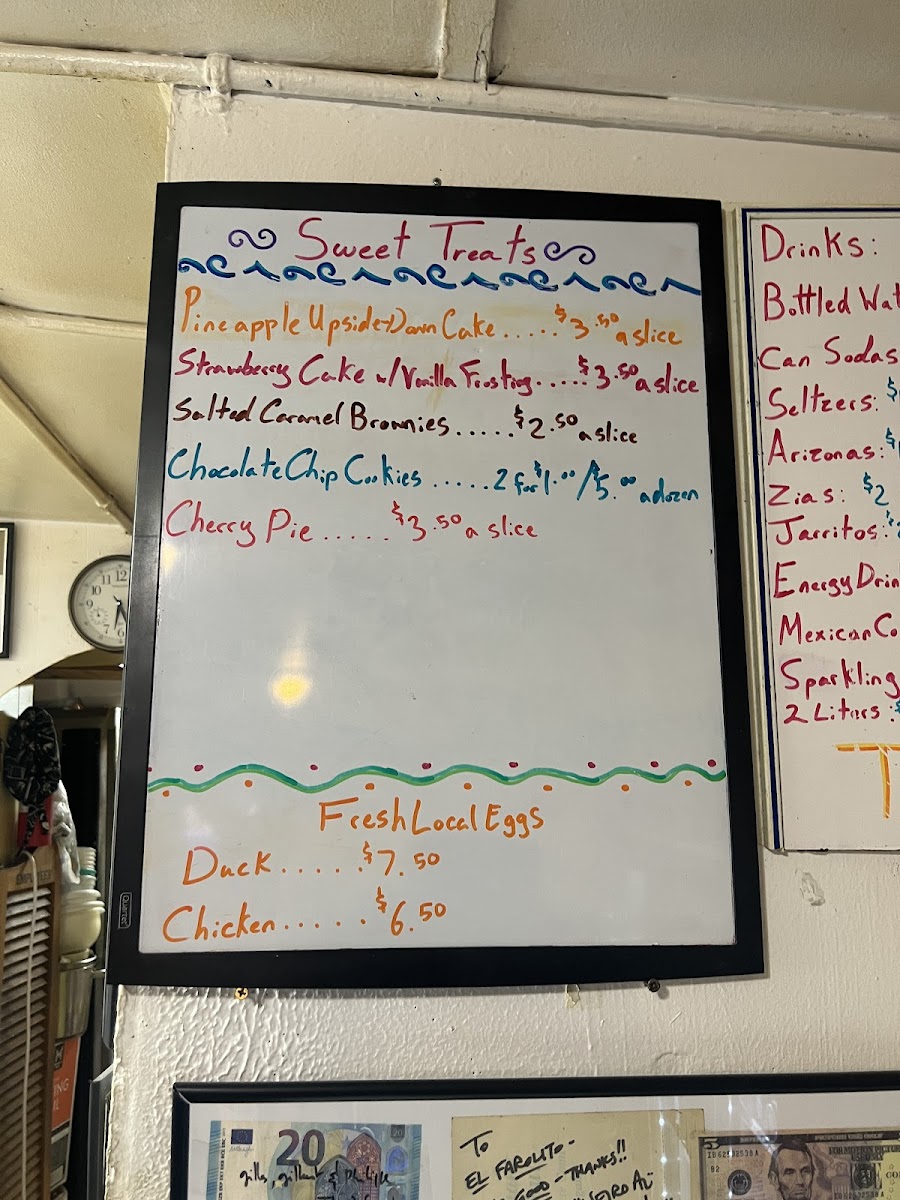 Sweet Treats
Pineapple Upside-Down Cake.....$3.50 a slice
Strawberry Cake w/Vanilla Frosting.....$3.50 a slice
Salted Caramel Brownies.....$2.50 a slice
Chocolate Chip Cookies.....2 for $1.00/$5.00 a dozen
Cherry Pie.....$3.50 a slice
Fresh Local Eggs
Duck.....$7.50
Chicken.....$6.50
Quartet
Drinks:
Bottled Wat
Can Sodas
Seltzers: $
Arizonas: $
Zias: $2
Jarritos: $
Energy Drin
Mexican Co
Sparkling
2 Liters: $
T
11 12
6
20
20
To
EL FAROLITO-
GOOD - THANKS!!
5
B2